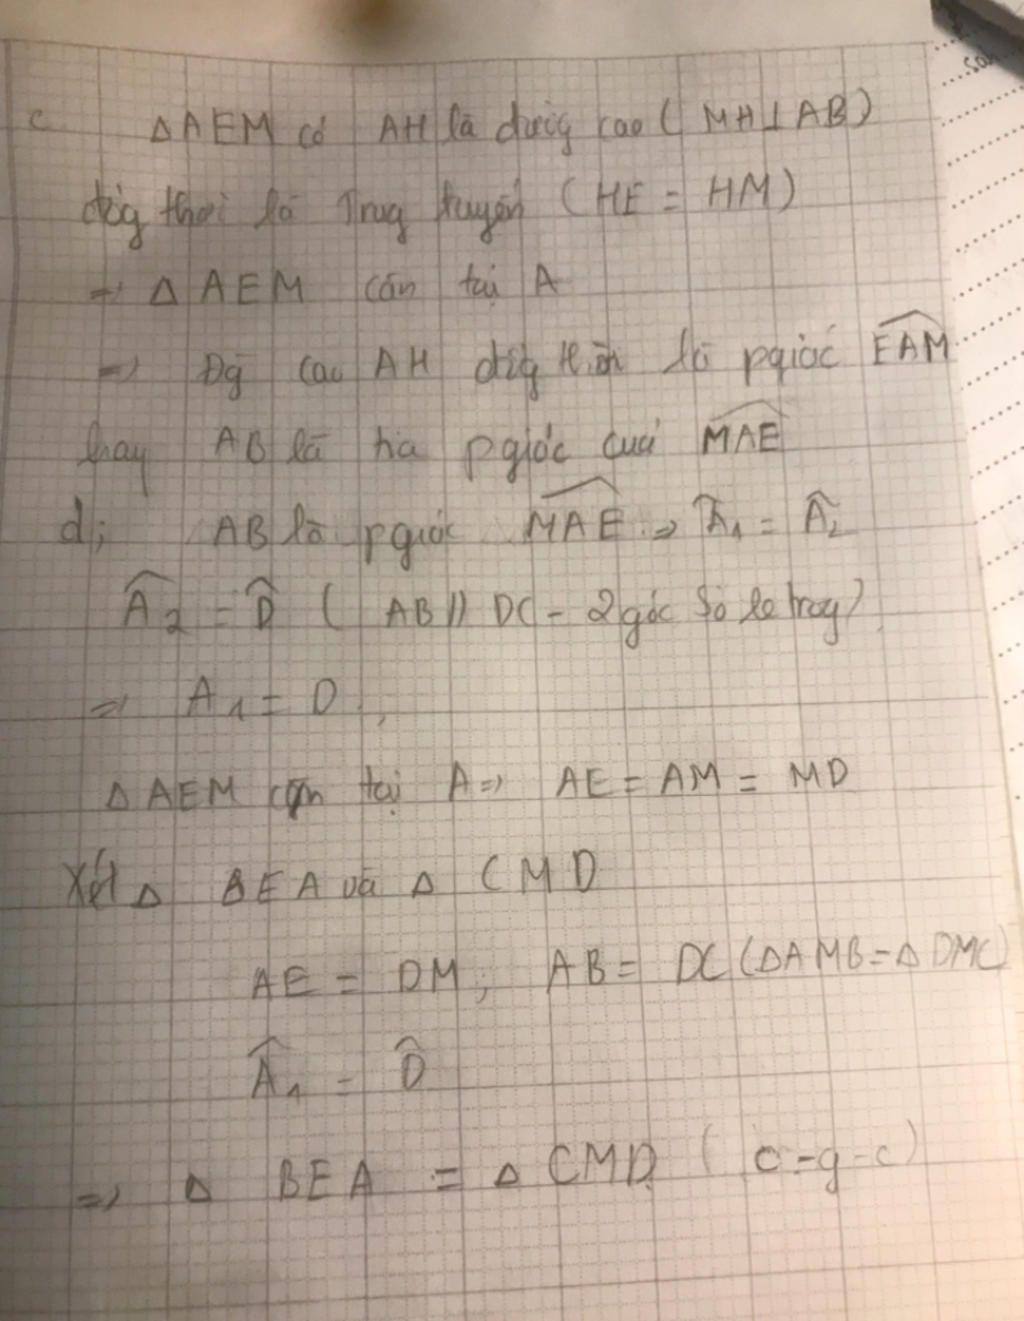 c ΔAEM có AH là đường cao ( MH⊥AB)
đồng thời là Trung tuyến (HE = HM)
⇒ Δ AEM cân tại A
⇒ Đg cao AH đồng thời là pgiác EAM
hay AB là tia pgiác của MAE
d; AB là pgiác MAE ⇒ A₁ = A₂
A₂ = D ( AB // DC - 2 góc so le trog)
⇒ A₁ = D
Δ AEM cân tại A ⇒ AE = AM = MD
Xét Δ BEA và Δ CMD
AE = DM; AB = DC (ΔAMB = Δ DMC)
A₁ = D
⇒ Δ BEA = Δ CMD ( c-g-c)